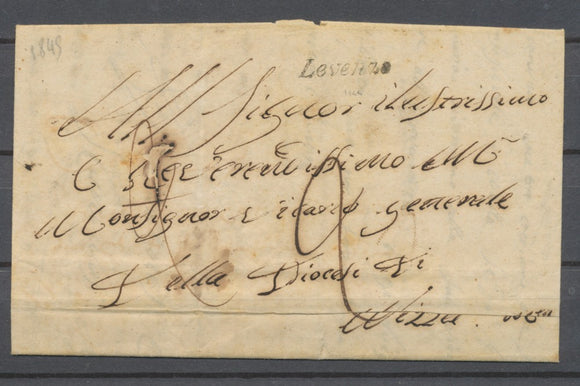 1849
Levenzo
All Signor illustrissimo
E Reverendissimo
Monsignor Vicario generale
Della Diocesi Di
Nizza